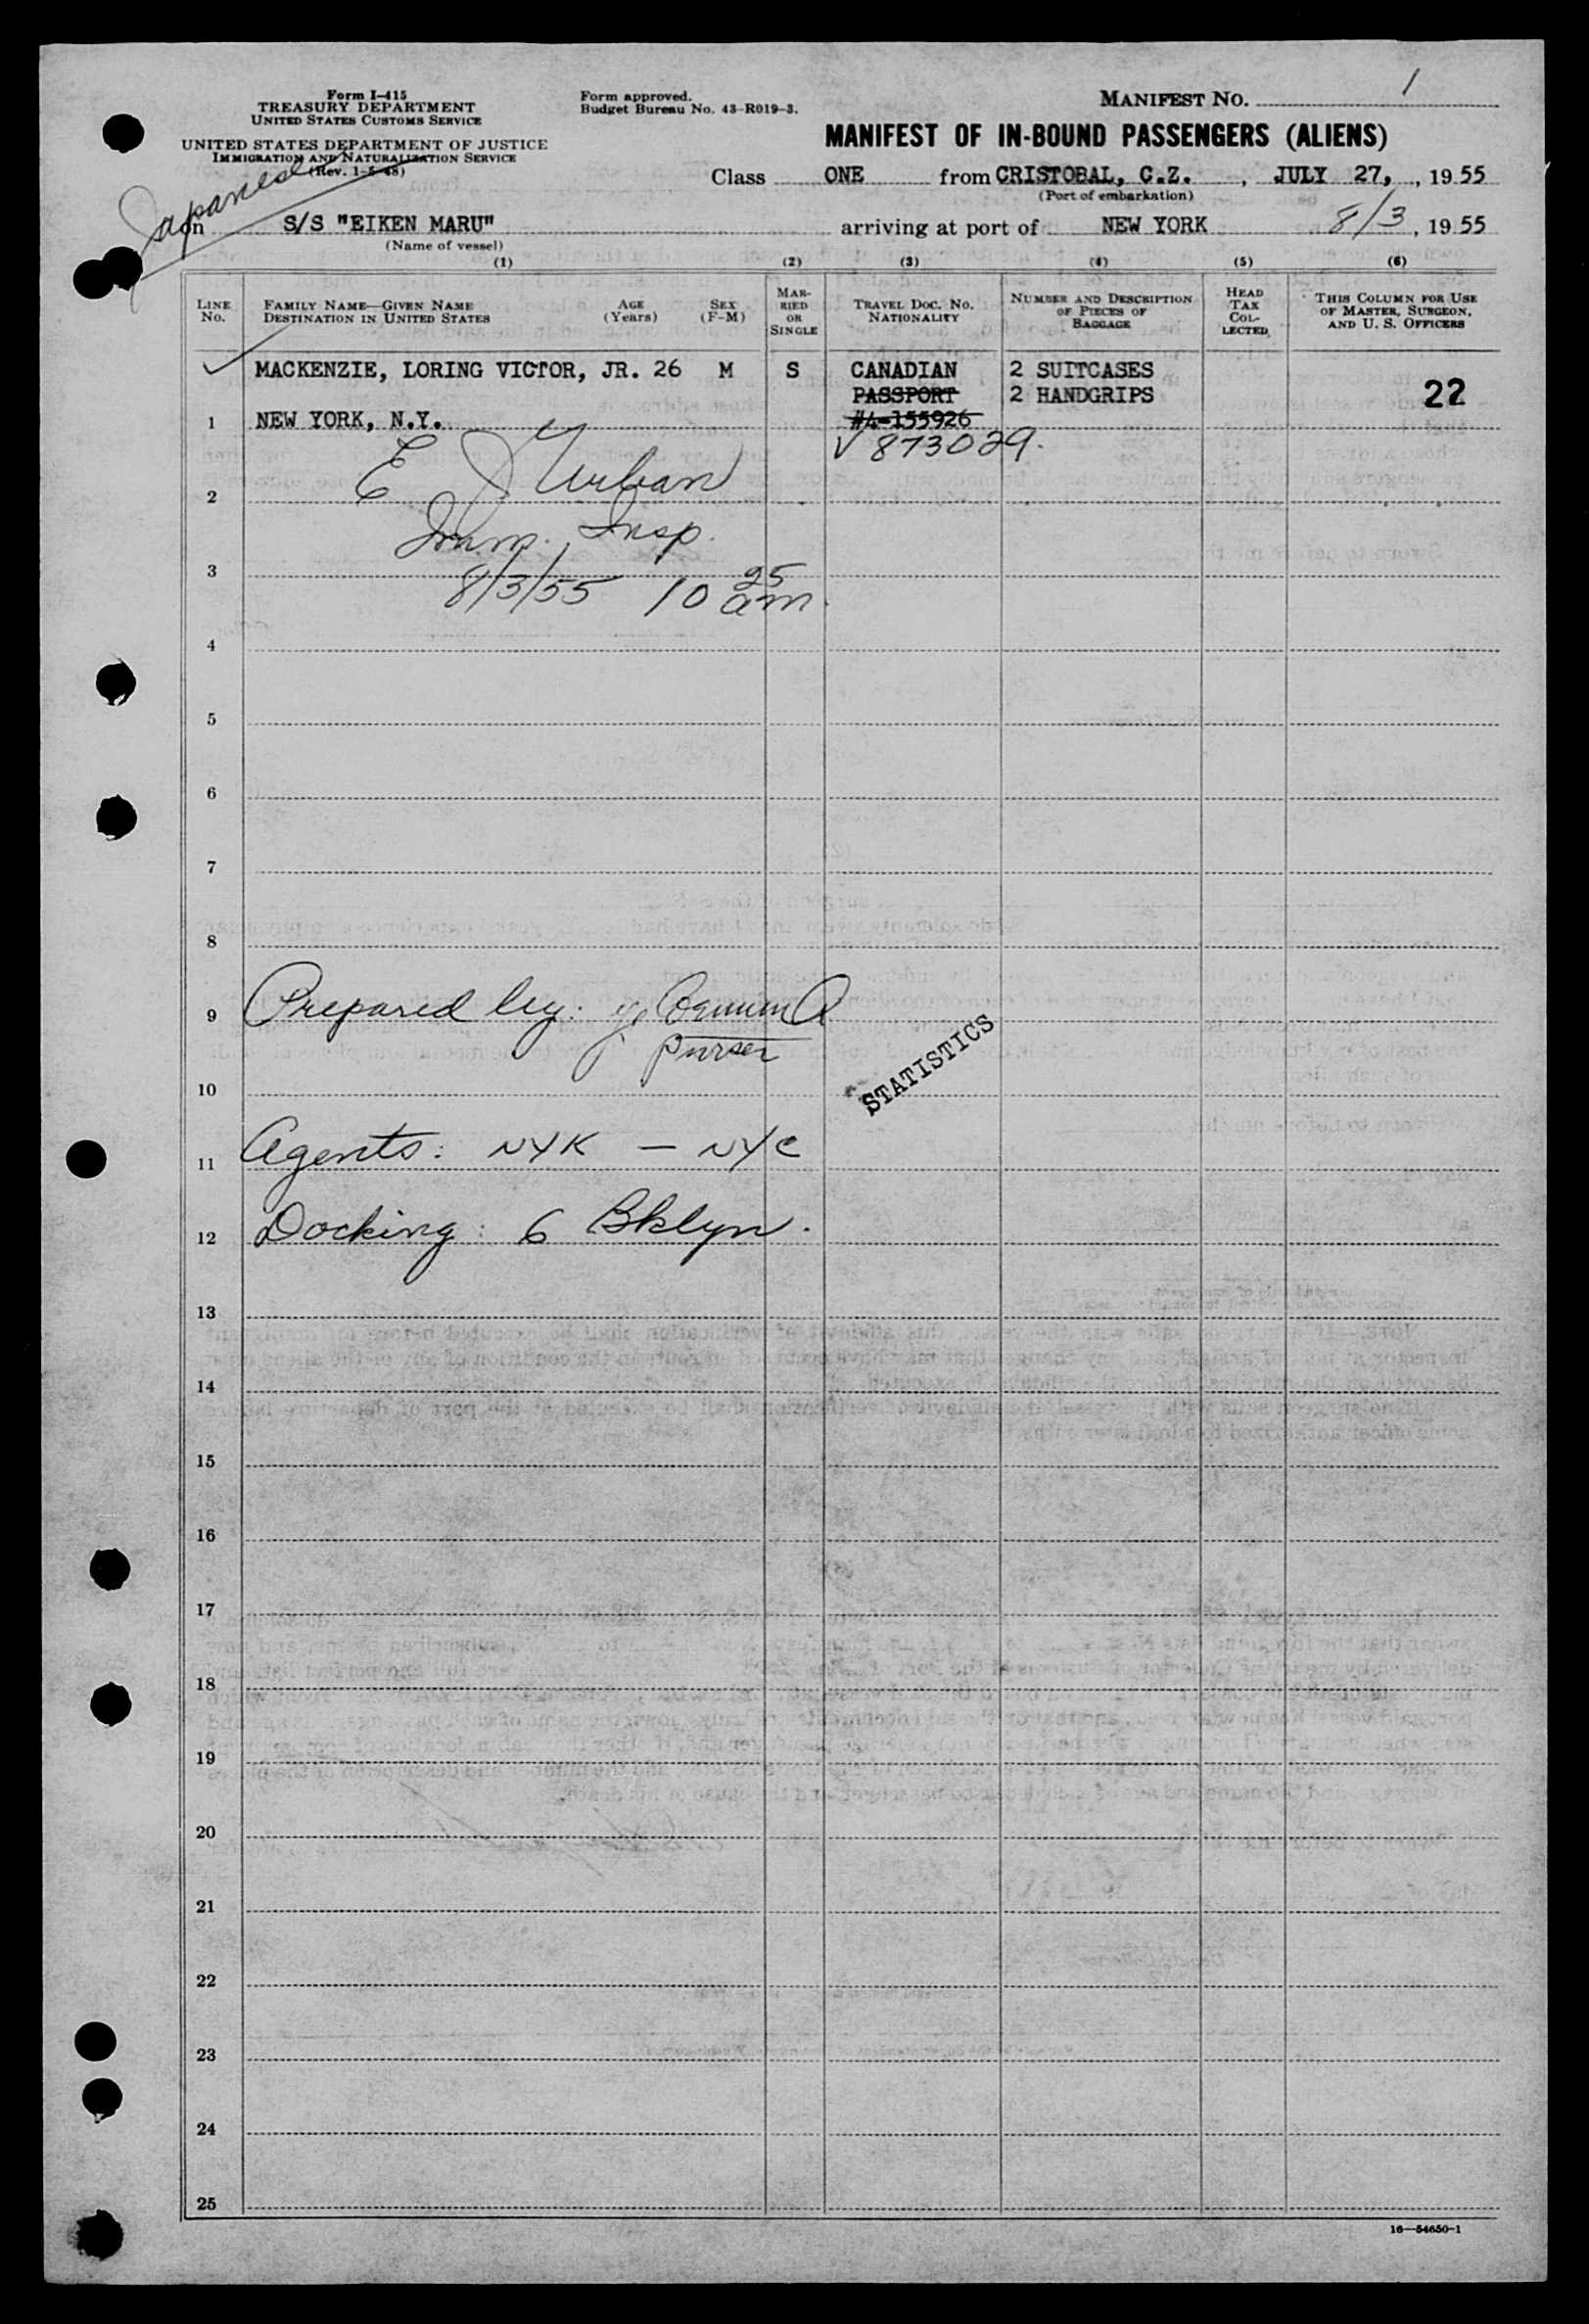 Form I-415
TREASURY DEPARTMENT
UNITED STATES CUSTOMS SERVICE
UNITED STATES DEPARTMENT OF JUSTICE
IMMIGRATION AND NATURALIZATION SERVICE
(Rev. 1-5-48)
Form approved.
Budget Bureau No. 43-R019-3.
MANIFEST NO. 1
MANIFEST OF IN-BOUND PASSENGERS (ALIENS)
Class ONE from CRISTOBAL, C.Z., JULY 27, 1955
(Port of embarkation)
Japanese
on S/S "EIKEN MARU" arriving at port of NEW YORK 8/3, 1955
(Name of vessel)
(1) (2) (3) (4) (5) (6)
LINE NO.
FAMILY NAME—GIVEN NAME
DESTINATION IN UNITED STATES
AGE (Years)
SEX (F-M)
MARRIED OR SINGLE
TRAVEL DOC. NO. NATIONALITY
NUMBER AND DESCRIPTION OF PIECES OF BAGGAGE
HEAD TAX COLLECTED
THIS COLUMN FOR USE OF MASTER, SURGEON, AND U. S. OFFICERS
MACKENZIE, LORING VICTOR, JR. 26 M S CANADIAN 2 SUITCASES
PASSPORT 2 HANDGRIPS 22
1 NEW YORK, N.Y. #4-155926
V 873029.
E J Urban
2
Imm. Insp.
3
8/3/55 10 25 am.
4
5
6
7
8
9 Prepared by:
purser
STATISTICS
10
11 Agents: NYK — NYC
12 Docking: 6 Bklyn.
13
14
15
16
17
18
19
20
21
22
23
24
25
16—54650-1